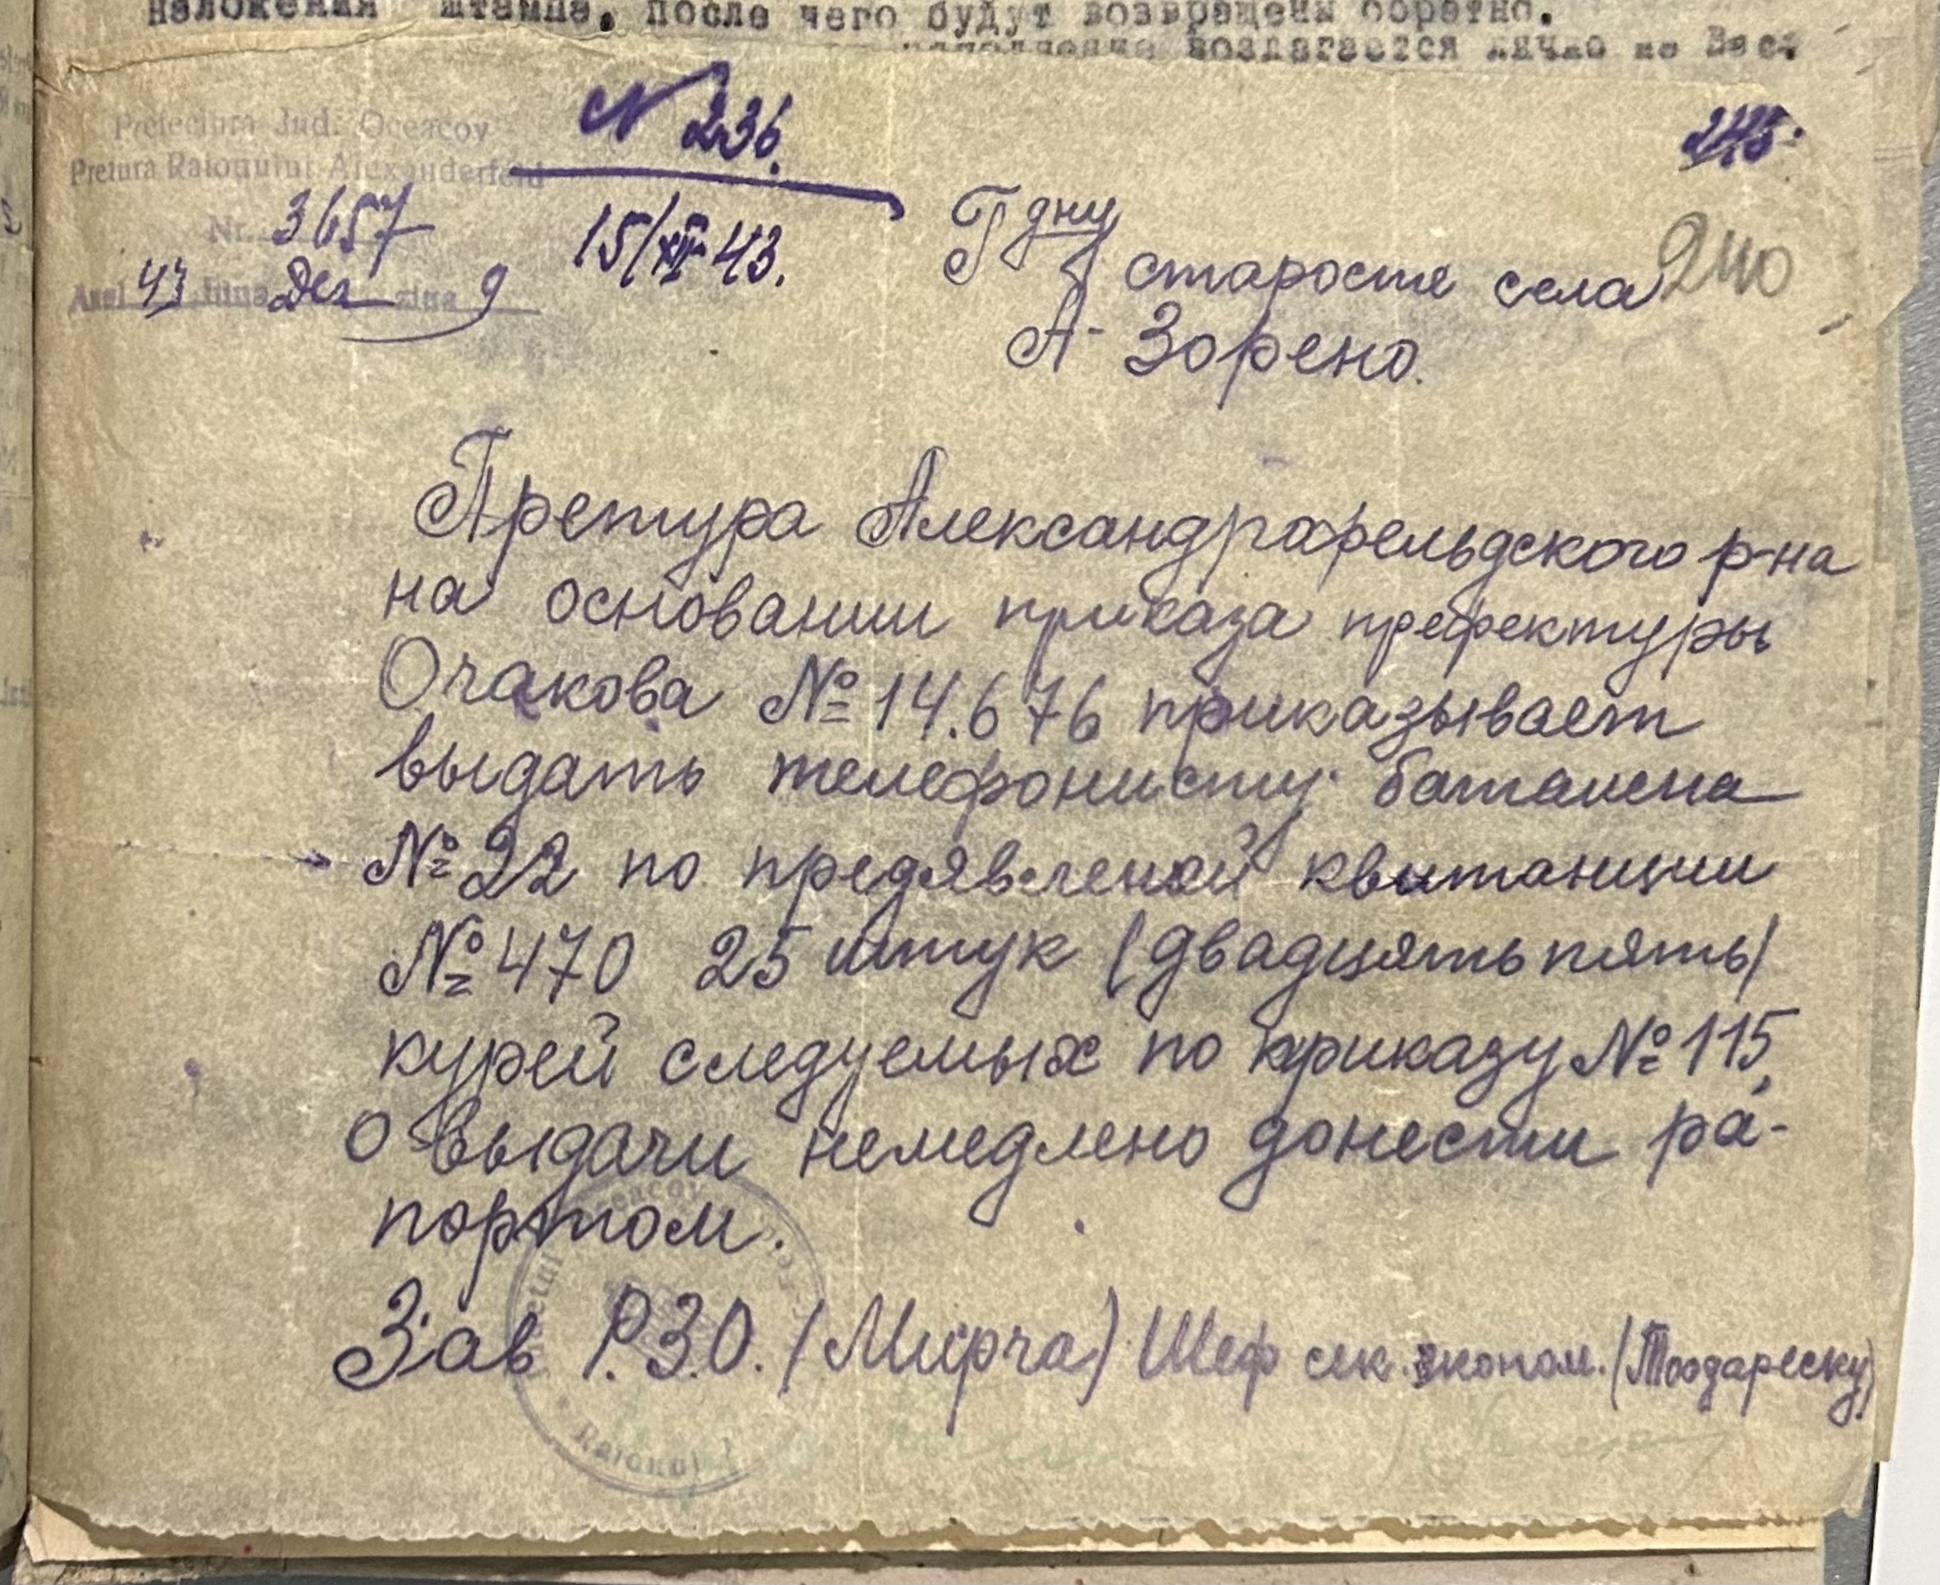 наложения штампа, после чего будут возвращены обратно.
возлагается лично на Вас.
Prefectura Jud. Oceacov
Pretura Raionului Alexanderfeld
Nr. 3657
Anul 43 luna Дек ziua 9
N 236.
15/XII-43.
245.
240
Гдну
старосте села
А- Зорено.
Претура Александрофельдского р-на
на основании приказа префектуры
Очакова № 14.676 приказывает
выдать телефонисту баталена
№ 22 по предявленой квитанции
№ 470 25 штук (двадцять пять)
курей следуемых по приказу № 115,
о выдачи немедлено донести ра-
портом.
Зав Р.З.О. (Мирча) Шеф сек. эконом. (Тоодареску)
Oceacov
Raionul